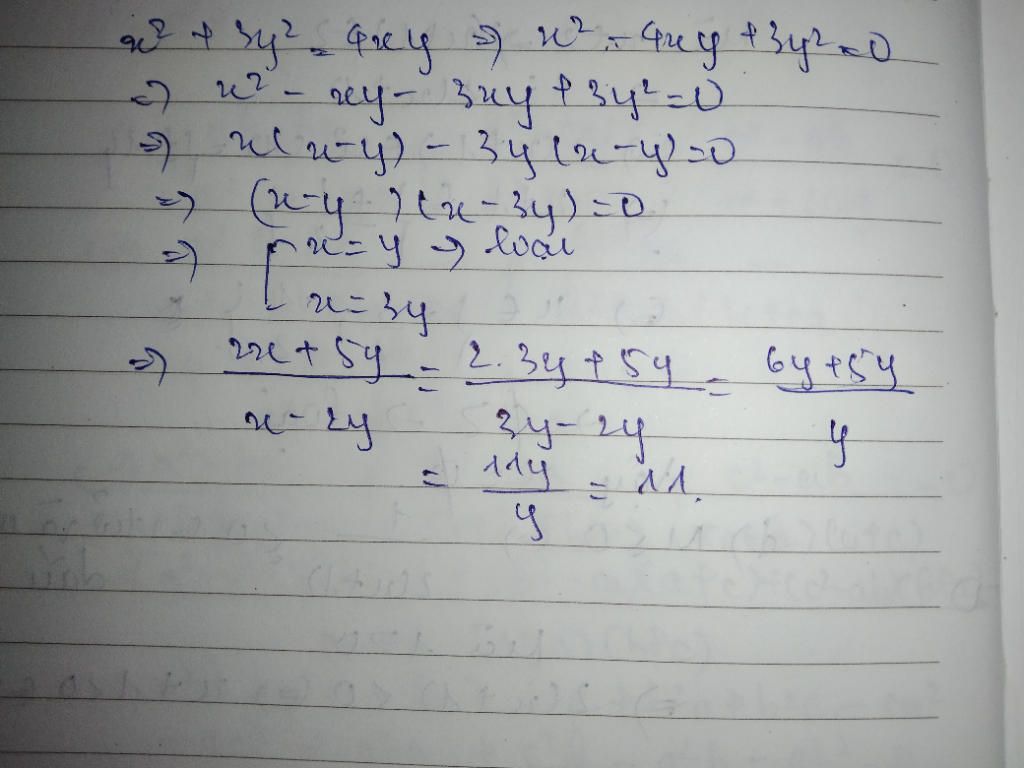 x² + 3y² = 4xy ⇒ x² - 4xy + 3y² = 0
⇒ x² - xy - 3xy + 3y² = 0
⇒ x(x-y) - 3y(x-y) = 0
⇒ (x-y)(x-3y) = 0
⇒ [ x = y → loại
x = 3y
⇒ (2x + 5y)/(x - 2y) = (2.3y + 5y)/(3y - 2y) = (6y + 5y)/y
= 11y/y = 11.